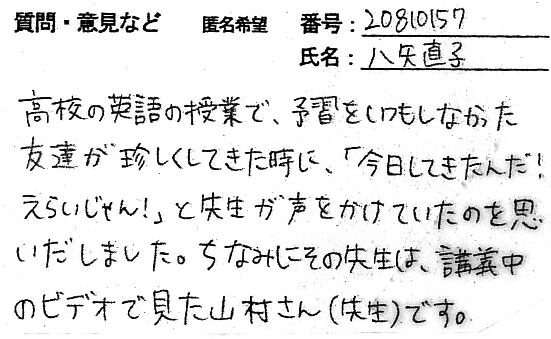 質問・意見など 匿名希望 番号:20810157
氏名:八矢直子
高校の英語の授業で、予習をいつもしなかった
友達が珍しくしてきた時に、「今日してきたんだ!
えらいじゃん!」と先生が声をかけていたのを思
いだしました。ちなみにその先生は、講義中
のビデオで見た山村さん(先生)です。